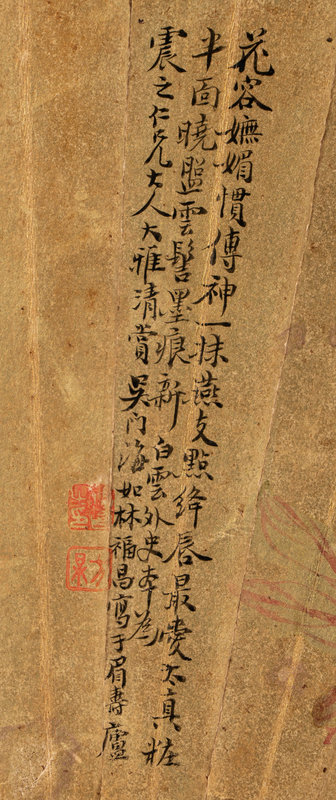 花容嫵媚慣傳神一抹燕支點絳唇最愛太真粧
半面曉盤雲髻墨痕新白雲外史奉為
震之仁兄大人大雅清賞吳門海如林福昌寫于眉壽廬